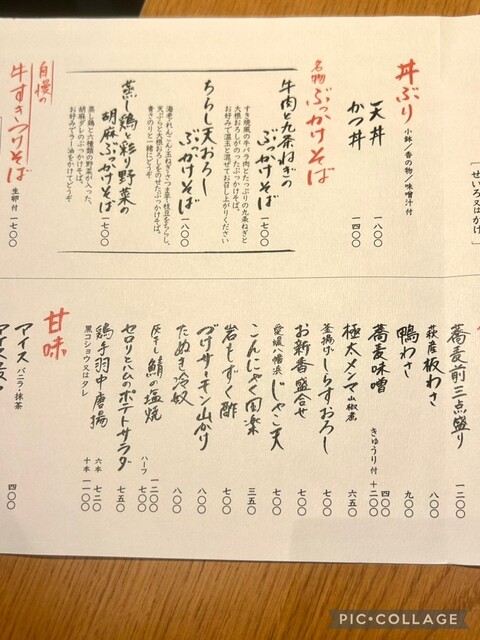 [せいろ又はかけ]
丼ぶり 小鉢/香の物/味噌汁付
天丼 一八〇〇
かつ丼 一四〇〇
名物 ぶっかけそば
牛肉と九条ねぎの
ぶっかけそば 一七〇〇
すき焼風の牛バラ肉とたっぷりの九条ねぎと
大根おろしがのったぶっかけそば。
お好みで温玉と混ぜてお召し上がりください
ちらし天おろし
ぶっかけそば 一八〇〇
海老・れんこん・玉ねぎ・さつま芋・枝豆をちらし、
天ぷらと大根おろしをのせたぶっかけそば。
青さのりと一緒にどうぞ
蒸し鶏と彩り野菜の
胡麻ぶっかけそば 一七〇〇
蒸し鶏と六種類の野菜が入った、
胡麻ダレのぶっかけそば。
お好みでラー油をかけてどうぞ
自慢の
牛すきつけそば 生卵付 一七〇〇
蕎麦前三点盛り 一二〇〇
萩産板わさ 八〇〇
鴨わさ 九〇〇
蕎麦味噌 四〇〇
きゅうり付 +二〇〇
極太メンマ 山椒煮 六五〇
釜揚げしらすおろし 七〇〇
お新香盛合せ 七〇〇
愛媛八幡浜 じゃこ天 七〇〇
こんにゃく田楽 三五〇
岩もずく酢 七〇〇
づけサーモン山かけ 八〇〇
たぬき冷奴 八〇〇
灰干し鯖の塩焼 一二〇〇
ハーフ 七〇〇
セロリとハムのポテトサラダ 七五〇
鶏手羽中唐揚 六本 七二〇
黒コショウ又はタレ 十本 一一〇〇
甘味
アイス バニラ・抹茶 四〇〇
PIC•COLLAGE